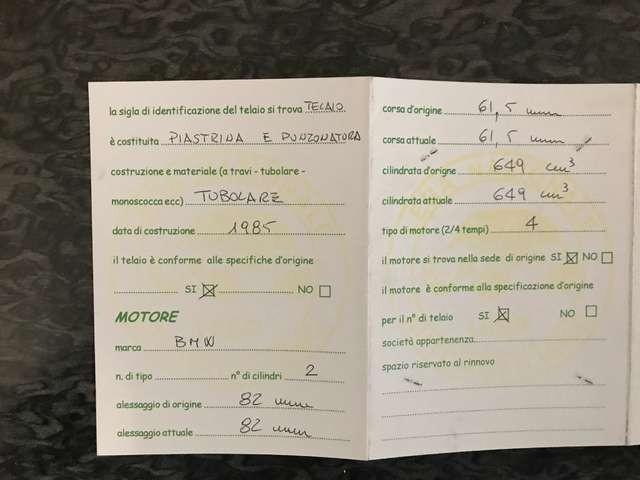 la sigla di identificazione del telaio si trova TELAIO
è costituita PIASTRINA E PUNZONATURA
costruzione e materiale (a travi - tubolare -
monoscocca ecc) TUBOLARE
data di costruzione 1985
il telaio è conforme alle specifiche d'origine
SI NO
MOTORE
marca BMW
n. di tipo n° di cilindri 2
alessaggio di origine 82 mm
alessaggio attuale 82 mm
corsa d'origine 61,5 mm
corsa attuale 61,5 mm
cilindrata d'origne 649 cm³
cilindrata attuale 649 cm³
tipo di motore (2/4 tempi) 4
il motore si trova nella sede di origine SI NO
il motore è conforme alla specificazione d'origine
per il n° di telaio SI NO
società appartenenza
spazio riservato al rinnovo